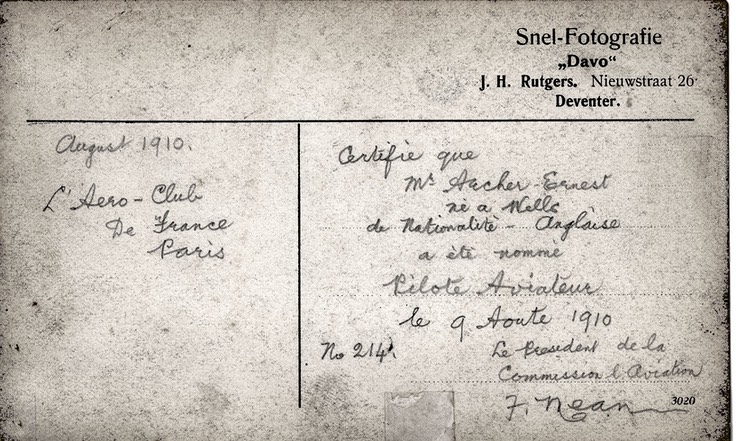 Snel-Fotografie
„Davo“
J. H. Rutgers. Nieuwstraat 26
Deventer.
August 1910.
L'Aero-Club
De France
Paris
Certifie que
Mr Archer-Ernest
nè a Wells
de Nationalitè - Anglaise
a ètè nommè
Pilote Aviateur
le 9 Aoute 1910
No 214.
Le President de la
Commission l Aviation
F. Nean
3020